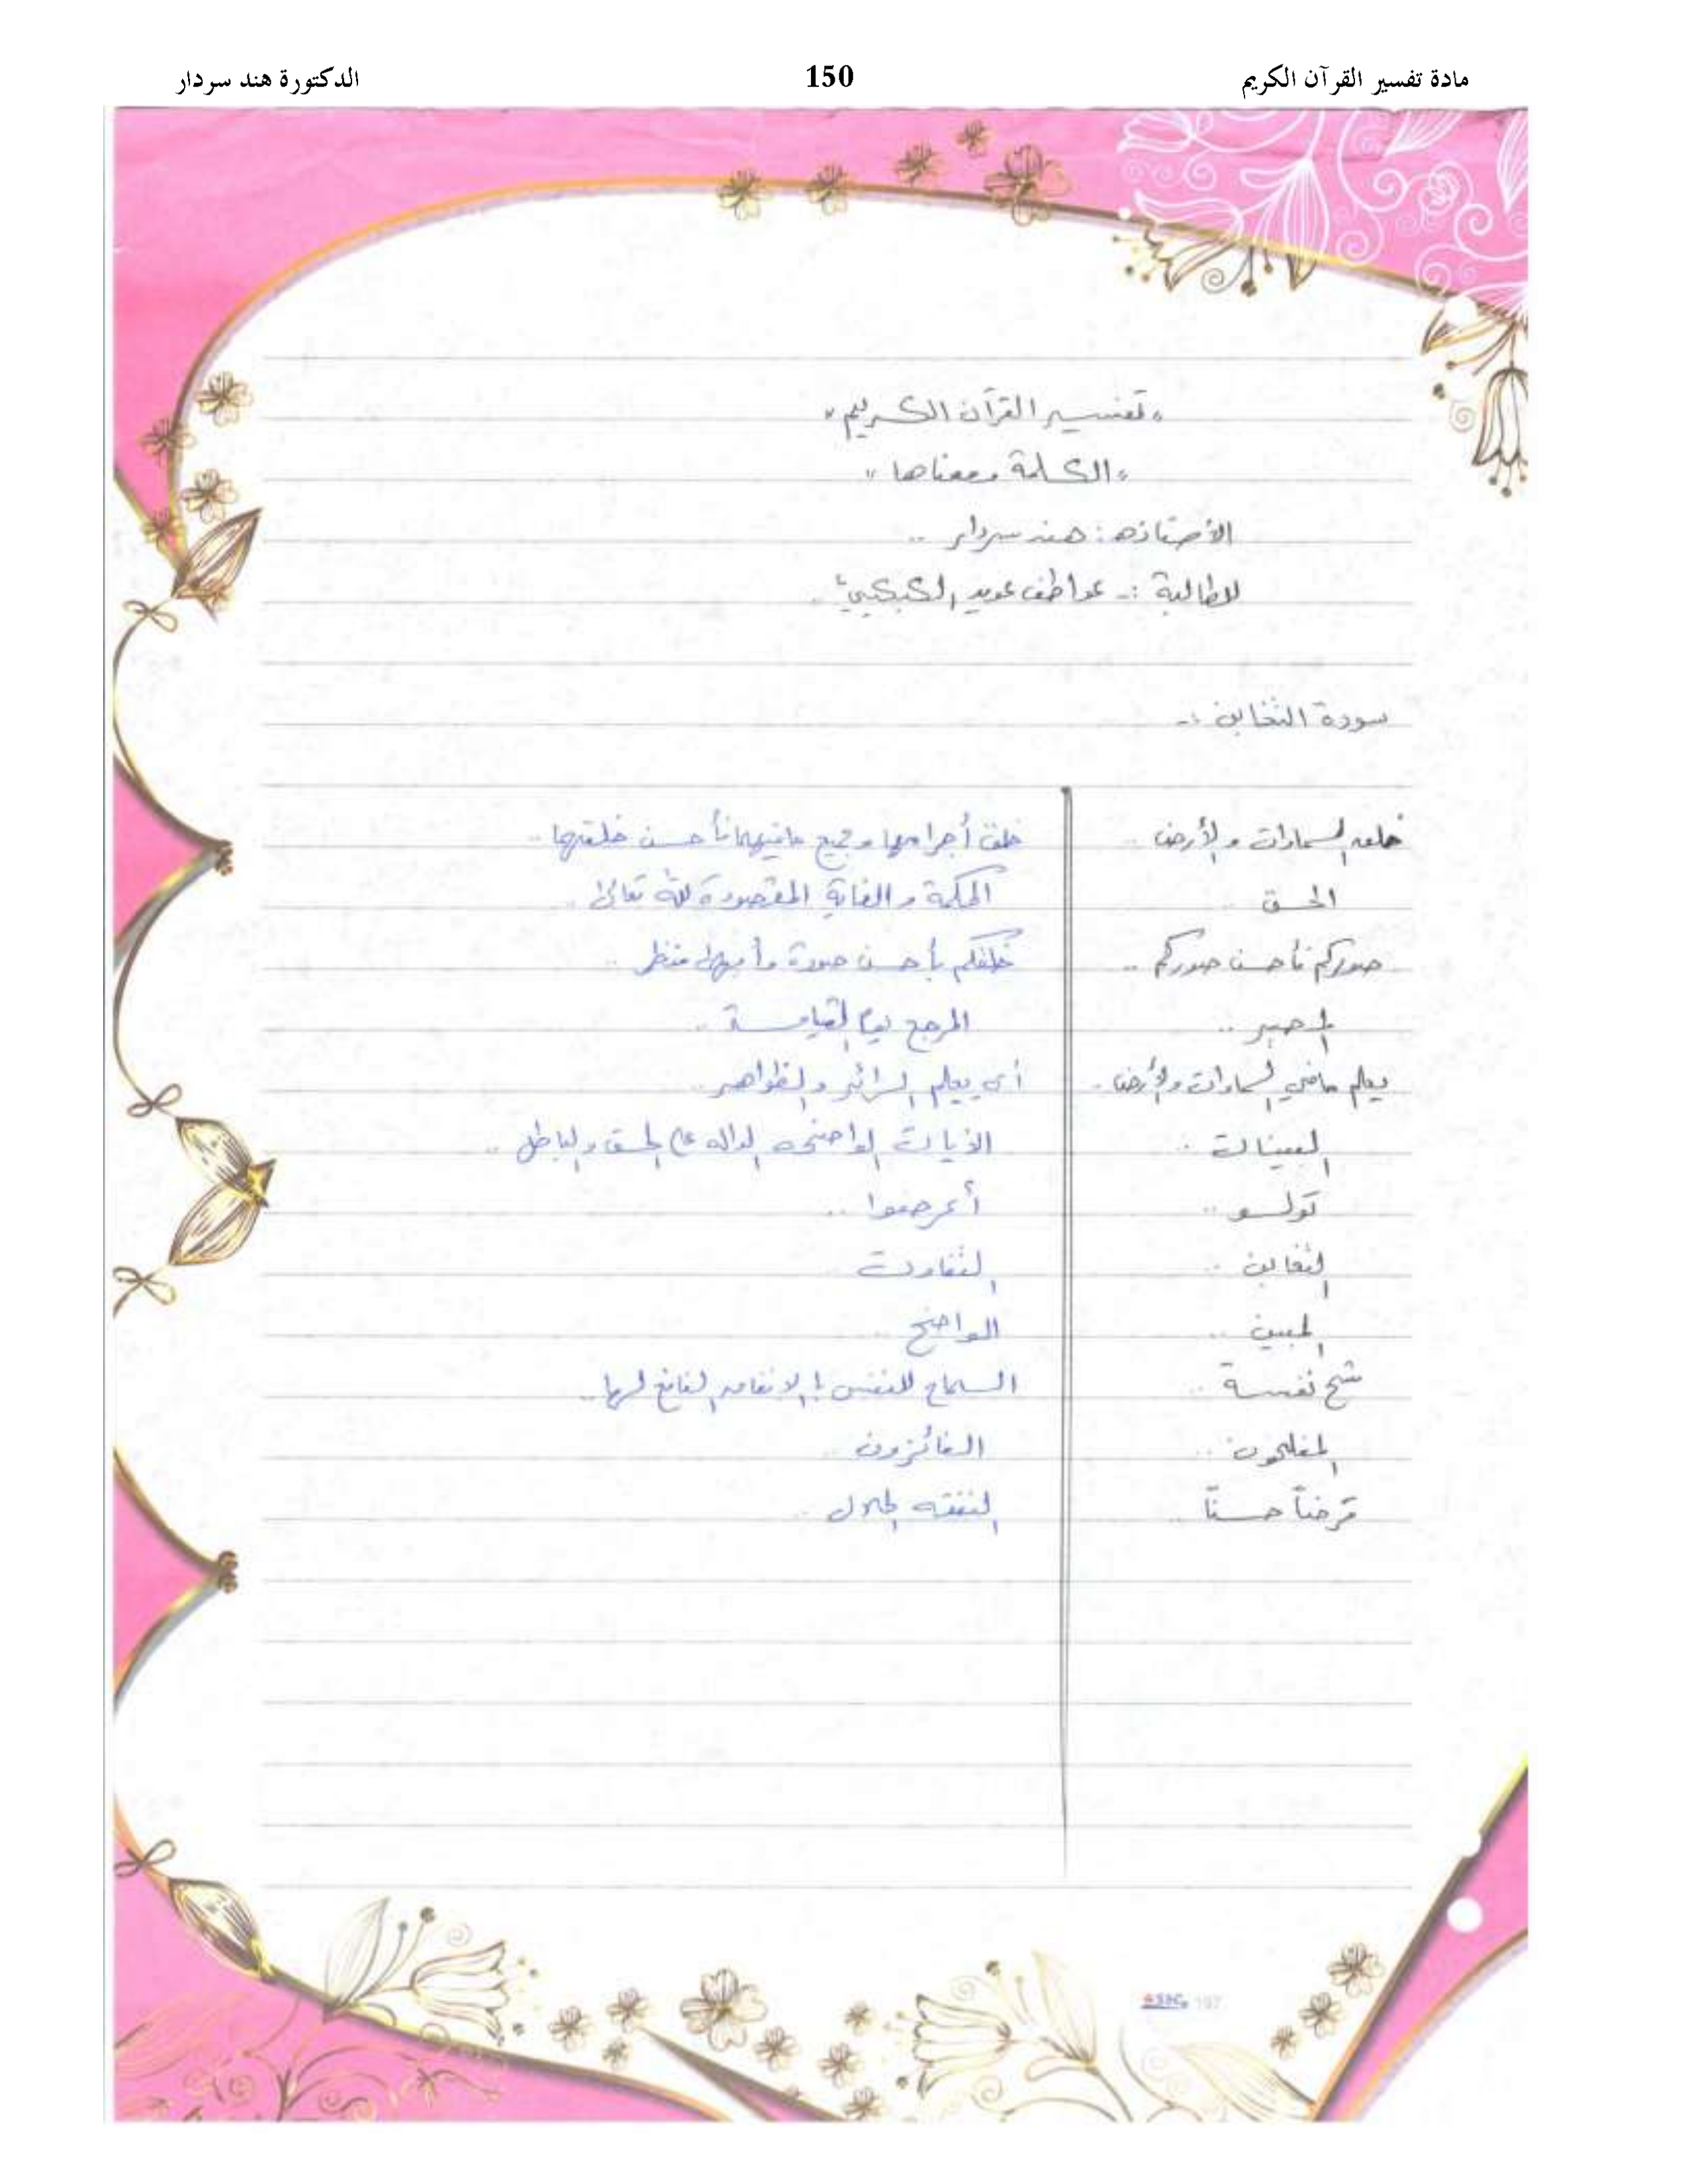 مادة تفسير القرآن الكريم 150 الدكتورة هند سردار
"تفسير القرآن الكريم"
"الكلمة ومعناها"
الأستاذه: هند سردار ..
الطالبة :- عواطف عويد
سورة التغابن :-
خلق السماوات والأرض .. خلق أجرامها وجميع مافيهما فأحسن خلقتها ..
الحق .. الحكمة والغاية المقصودة لله تعالى ..
صوركم فأحسن صوركم .. خلقكم بأحسن صورة وأبهى منظر ..
المصير .. المرجع يوم القيامة ..
يعلم مافي السماوات والأرض .. أي يعلم السرائر والظواهر ..
البينات .. الآيات الواضحه الداله على الحق والباطل ..
تولو .. أعرضوا ..
التغابن .. التفاوت
المبين .. الواضح ..
شح نفسة .. السماح للنفس بالإنفاق النافع لها ..
المفلحون .. الفائزون ..
قرضاً حسناً .. النفقه الحلال ..
SBC 197